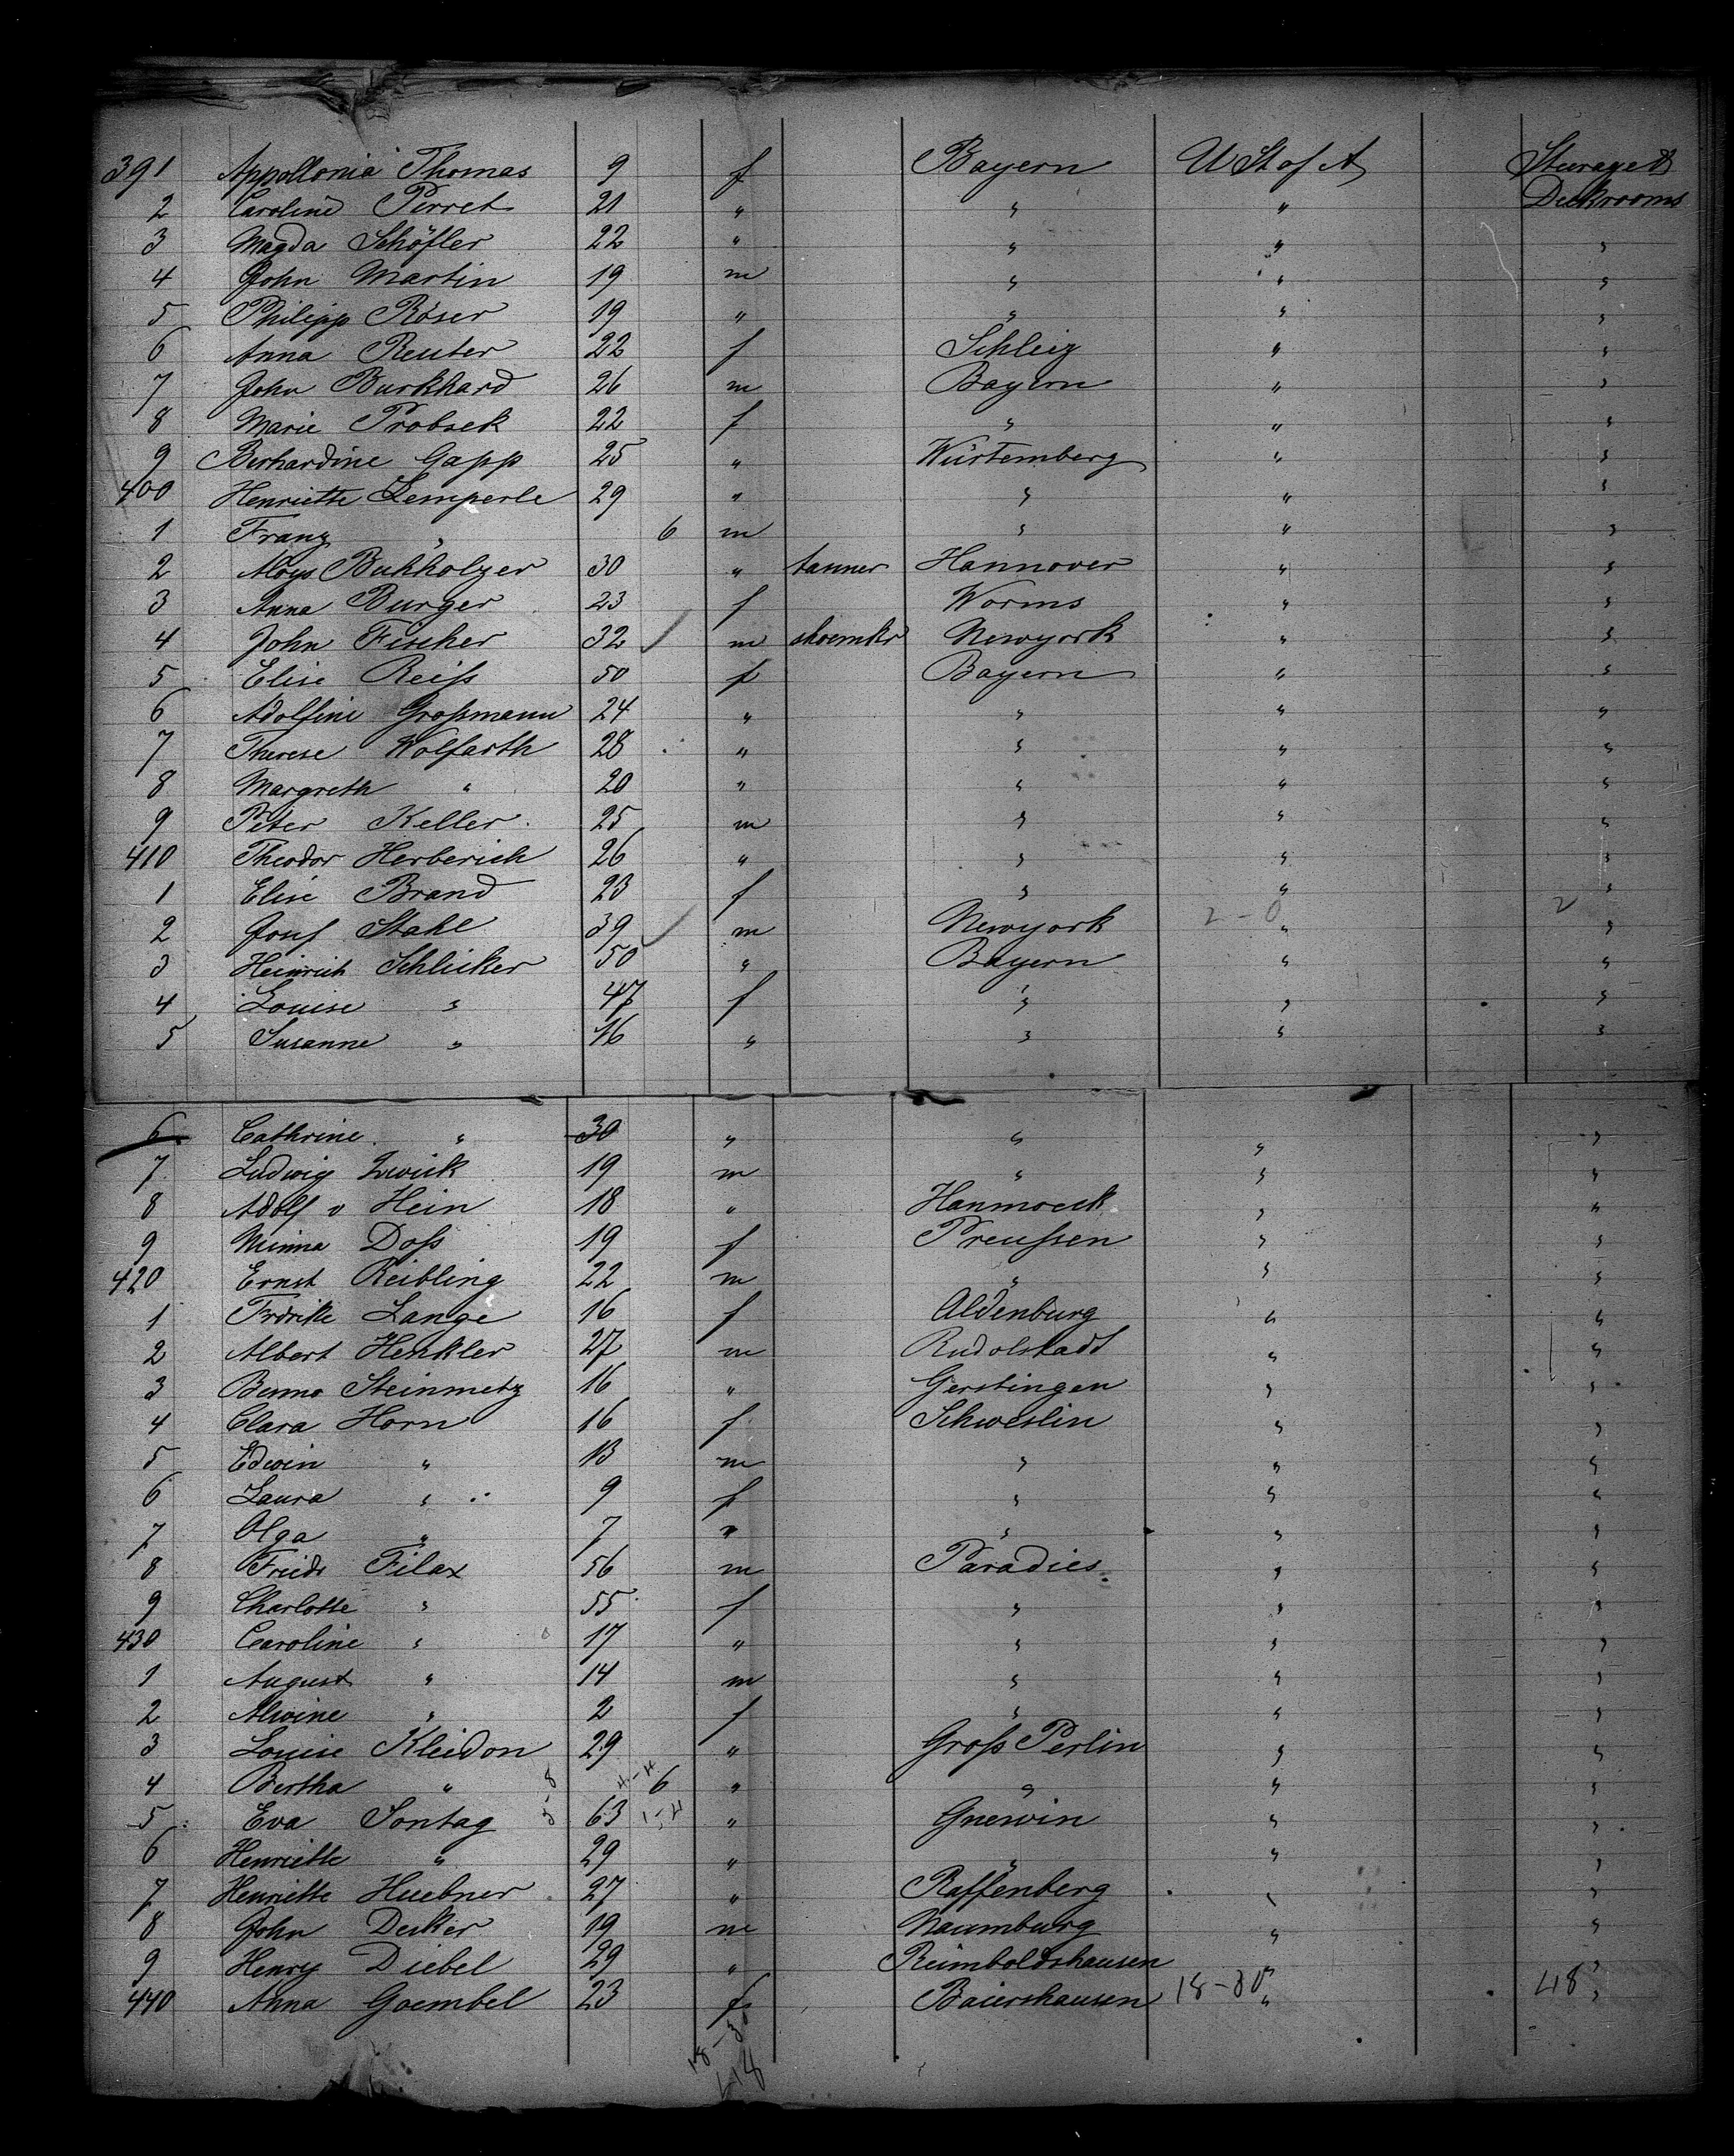 391 Appollonia Thomas 9 f Bayern U St of A Steerage &
2 Caroline Perret 21 " " " Deckrooms
3 Magda Schöfler 22 " " " "
4 John Martin 19 m " " "
5 Philipp Röser 19 " " " "
6 Anna Reuter 22 f Schleiz " "
7 John Burkhard 26 m Bayern " "
8 Marie Probsek 22 f " " "
9 Berhardine Gapp 25 " Würtemberg " "
400 Henriette Lemperle 29 " " " "
1 Franz " 6 m " " "
2 Aloys Buhholzer 30 " tanner Hannover " "
3 Anna Burger 23 f Worms " "
4 John Fischer 32 m shoemkr Newyork " "
5 Elise Reiß 50 f Bayern " "
6 Adolfine Großmann 24 " " " "
7 Therese Wolfarth 28 " " " "
8 Margreth " 20 " " " "
9 Peter Keller 25 m " " "
410 Theodor Herberich 26 " " " "
1 Elise Brand 23 f " " "
2 Stahl 39 m Newyork 2-0 " 2 "
3 Heinrich Schlicker 50 " Bayern " "
4 Louise " 47 f " " "
5 Susanne " 16 " " " "
6 Cathrine " 30 " " " "
7 Ludwig Zwick 19 m " " "
8 Adolf v Hein 18 " " "
9 Minna Doß 19 f Preußen " "
420 Ernst Reibling 22 m " " "
1 Frdrike Lange 16 f Aldenburg " "
2 Albert Henkler 27 m Rudolstadt " "
3 Benno Steinmetz 16 " Gerstingen " "
4 Clara Horn 16 f Schweslin " "
5 Edwin " 13 m " " "
6 Laura " 9 f " " "
7 Olga " 7 " " " "
8 Friedr Filax 56 m Paradies " "
9 Charlotte " 55 f " " "
430 Caroline " 17 " " " "
1 August " 14 m " " "
2 Alwine " 2 f " " "
3 Louise Kleidon 29 " Groß Perlin " "
4 Bertha " 6 " " " "
5 Eva Sontag 63 " Gnewin " "
6 Henriette " 29 " " " "
7 Henriette Huebner 27 " Raffenberg " "
8 John Decker 19 m Naumburg " "
9 Henry Diebel 29 " Reimboldshausen " "
440 Anna Goembel 23 f Baiershausen 18-30 " 48 "
18-30
48